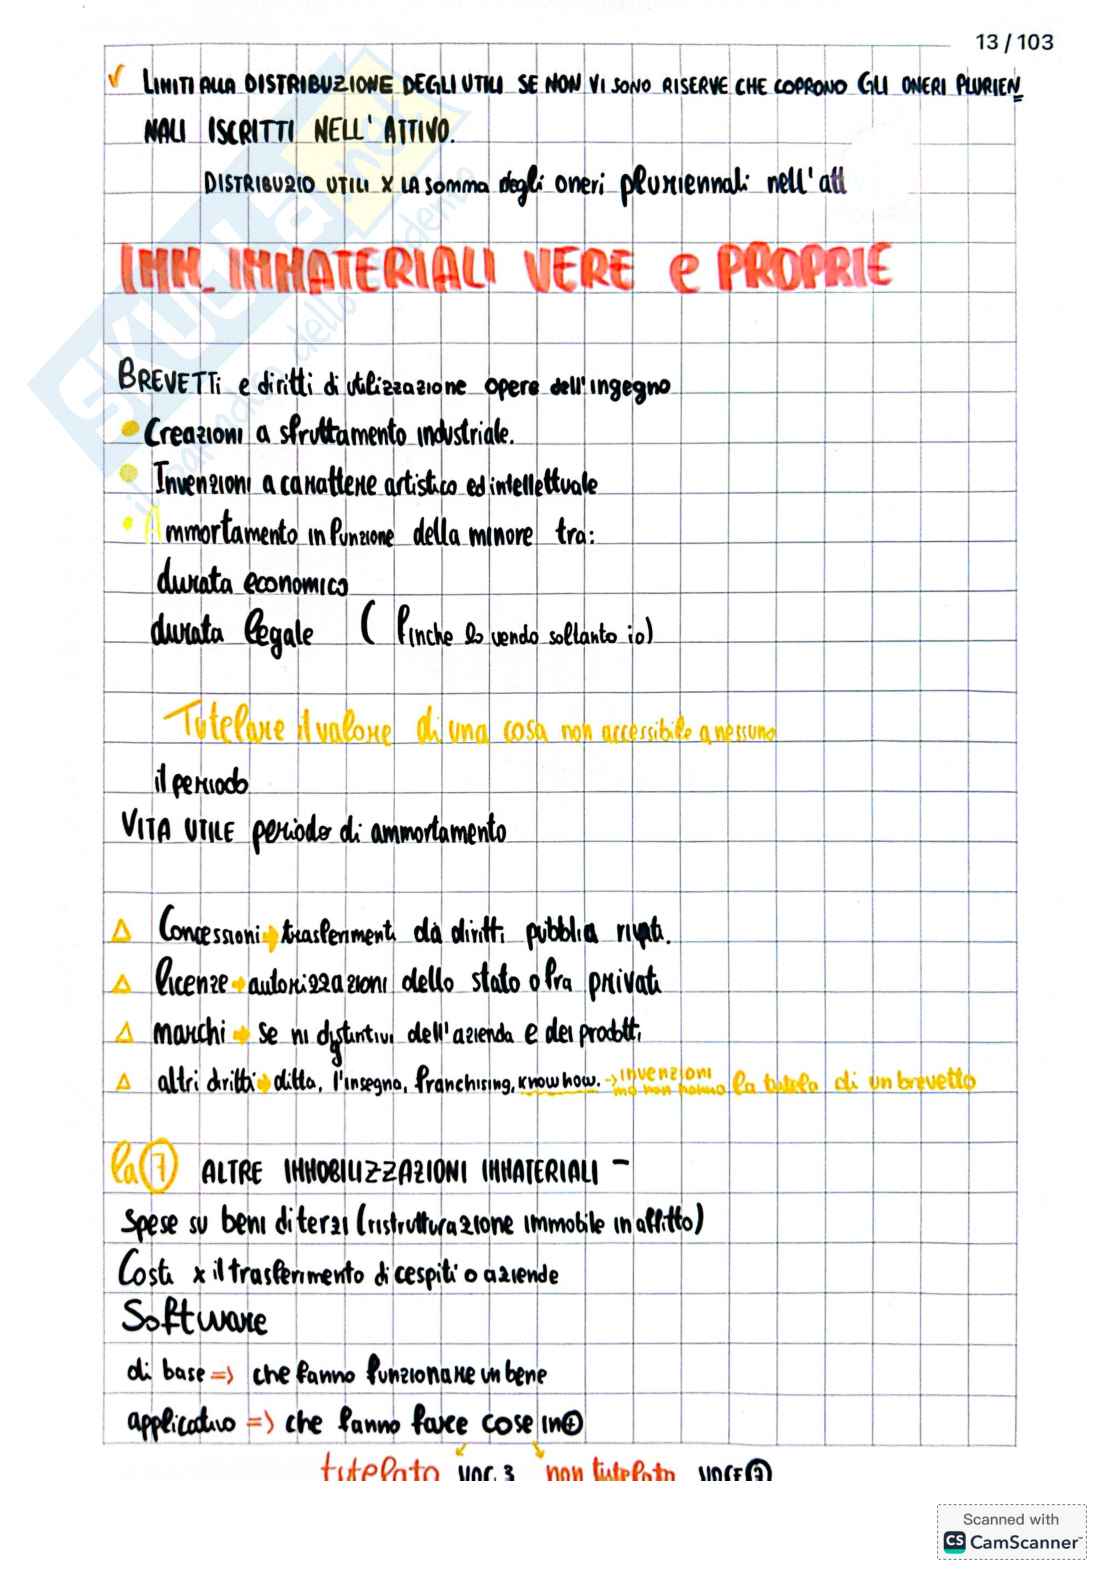 13 / 103
✓ LIMITI ALLA DISTRIBUZIONE DEGLI UTILI SE NON VI SONO RISERVE CHE COPRONO GLI ONERI PLURIEN
NALI ISCRITTI NELL'ATTIVO.
DISTRIBUZIO UTILI X LA somma degli oneri pluriennali nell'att
IMM. IMMATERIALI VERE e PROPRIE
BREVETTi e diritti di utilizzazione opere dell'ingegno
• Creazioni a sfruttamento industriale.
• Invenzioni a carattere artistico ed intellettuale
• Ammortamento in funzione della minore tra:
durata economico
durata legale ( finche lo vendo soltanto io)
Tutelare il valore di una cosa non accessibile a nessuno
il periodo
VITA UTILE periodo di ammortamento
△ Concessioni → trasferimenti da diritti
△ licenze → autorizzazioni dello stato o fra privati
△ marchi → se ni distintivi dell'azienda e dei prodotti
△ altri diritti → ditta, l'insegna, franchising, know how. → invenzioni
ma non hanno la tutela di un brevetto
la 7 ALTRE IMMOBILIZZAZIONI IMMATERIALI –
Spese su beni di terzi (ristrutturazione immobile in affitto)
Costi x il trasferimento di cespiti o aziende
Software
di base => che fanno funzionare un bene
applicativo => che fanno fare cose in +
tutelato voc. 3 non tutelato VOCE 7
Scanned with
CS CamScanner
SKUOLA.net